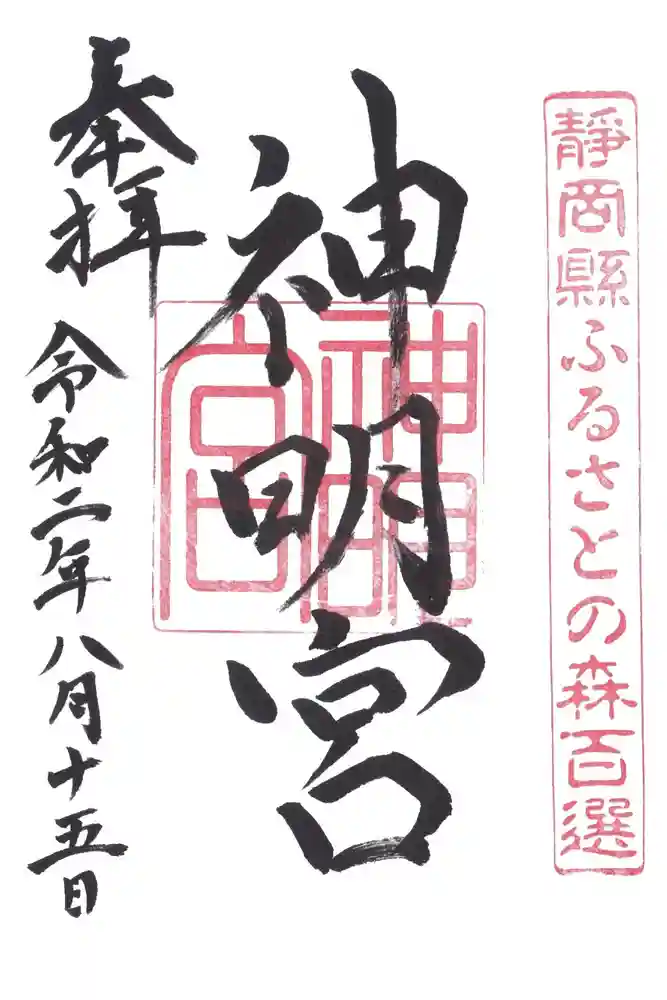 靜岡縣ふるさとの森百選
神明宮
神明宮
奉拝
令和二年八月十五日